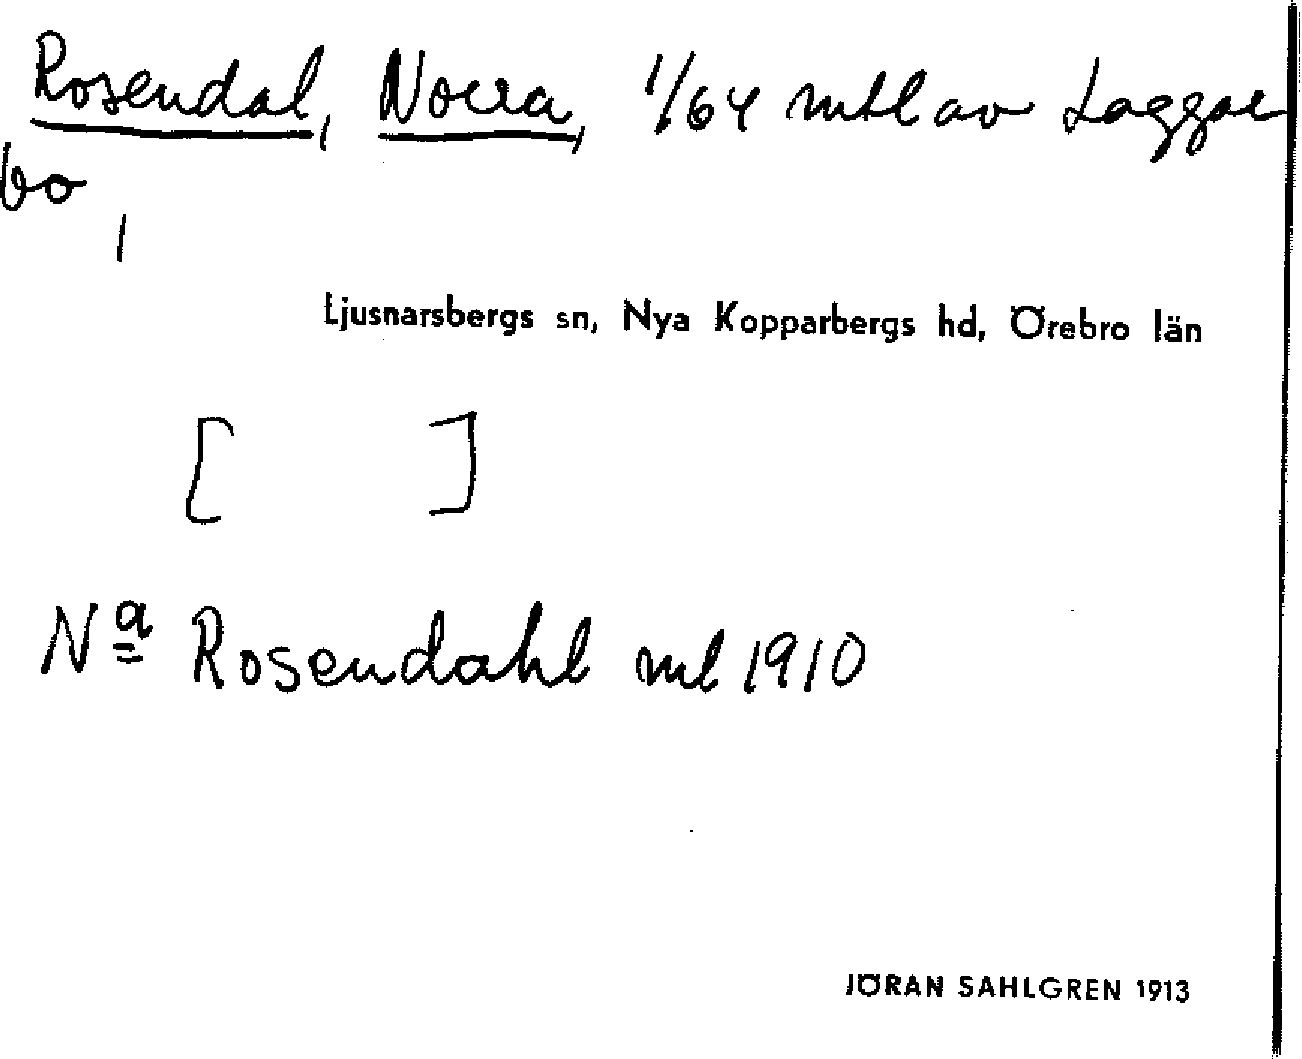 Rosendal, Norra, 1/64 mtl av Laggar
bo,
Ljusnarsbergs sn, Nya Kopparbergs hd, Örebro län
[ ]
Na Rosendahl ml 1910
JÖRAN SAHLGREN 1913